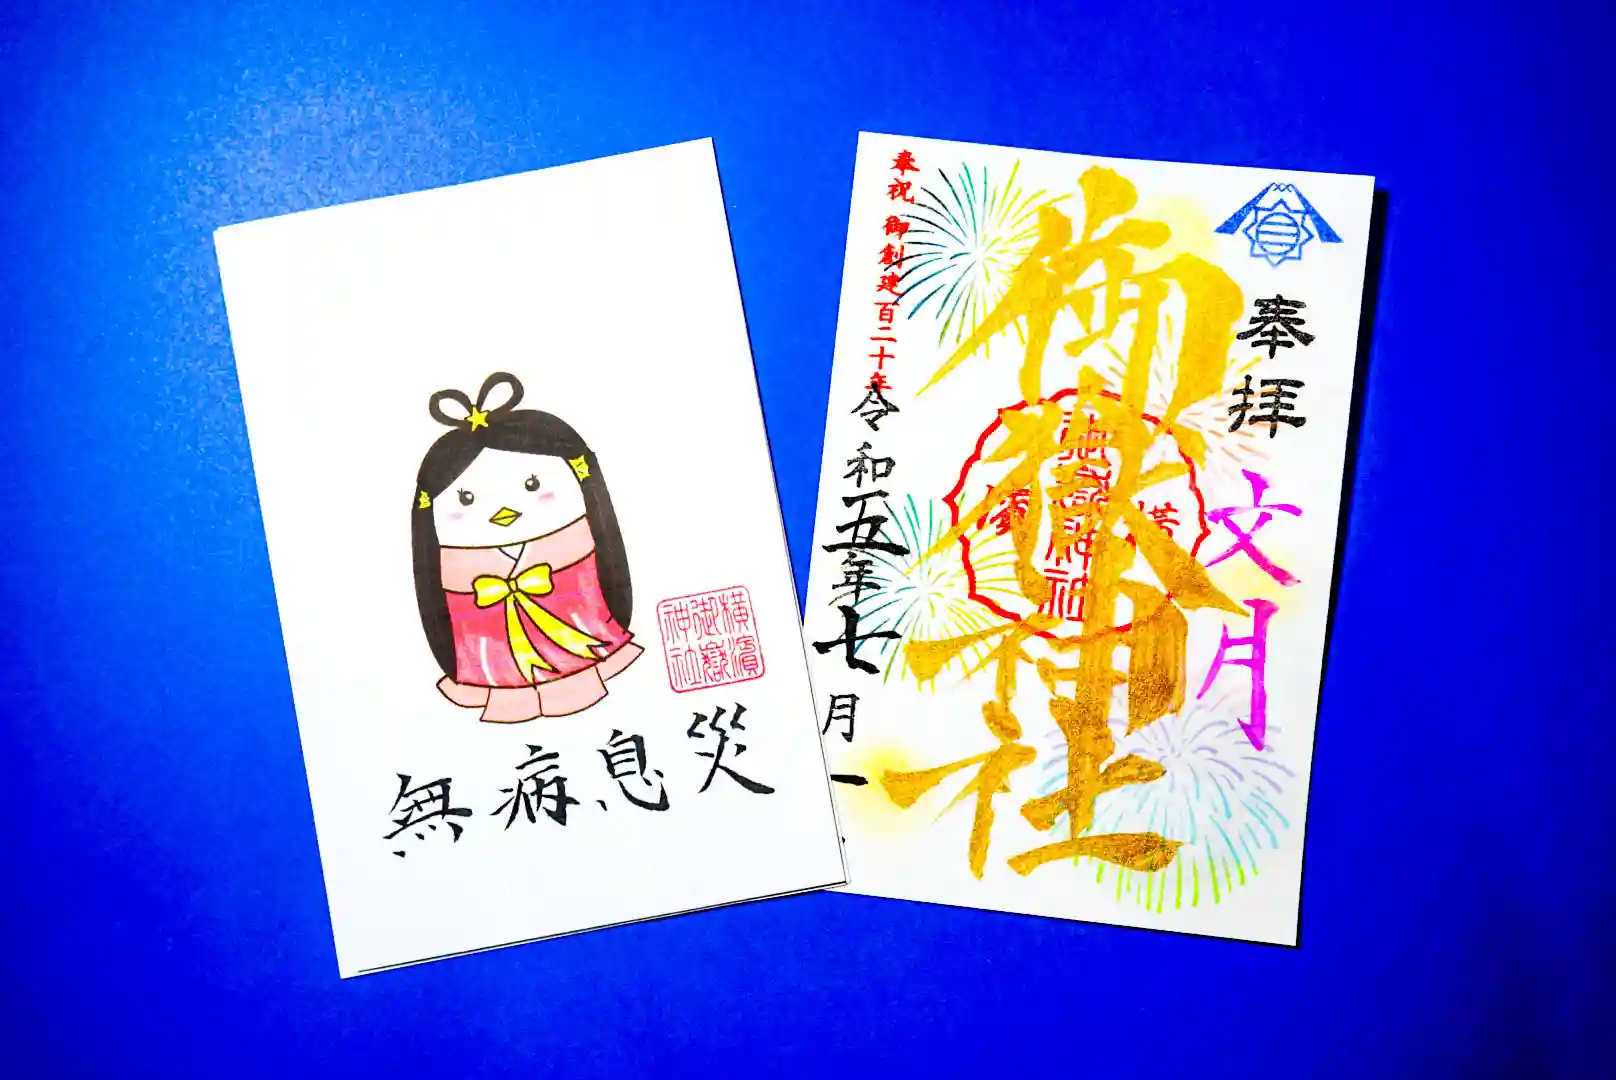 無病息災
横濱
御嶽
神社
奉拝
文月
御嶽神社
横
御嶽神社
奉祝 御創建百二十年
令和五年七月一